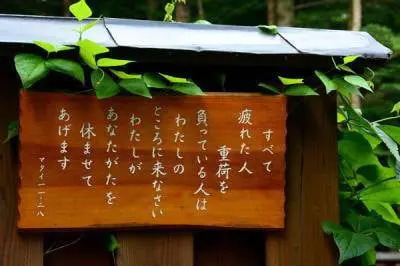 すべて
疲れた人
重荷を
負っている人は
わたしの
ところに来なさい
わたしが
あなたがたを
休ませて
あげます
マタイ一一・二八